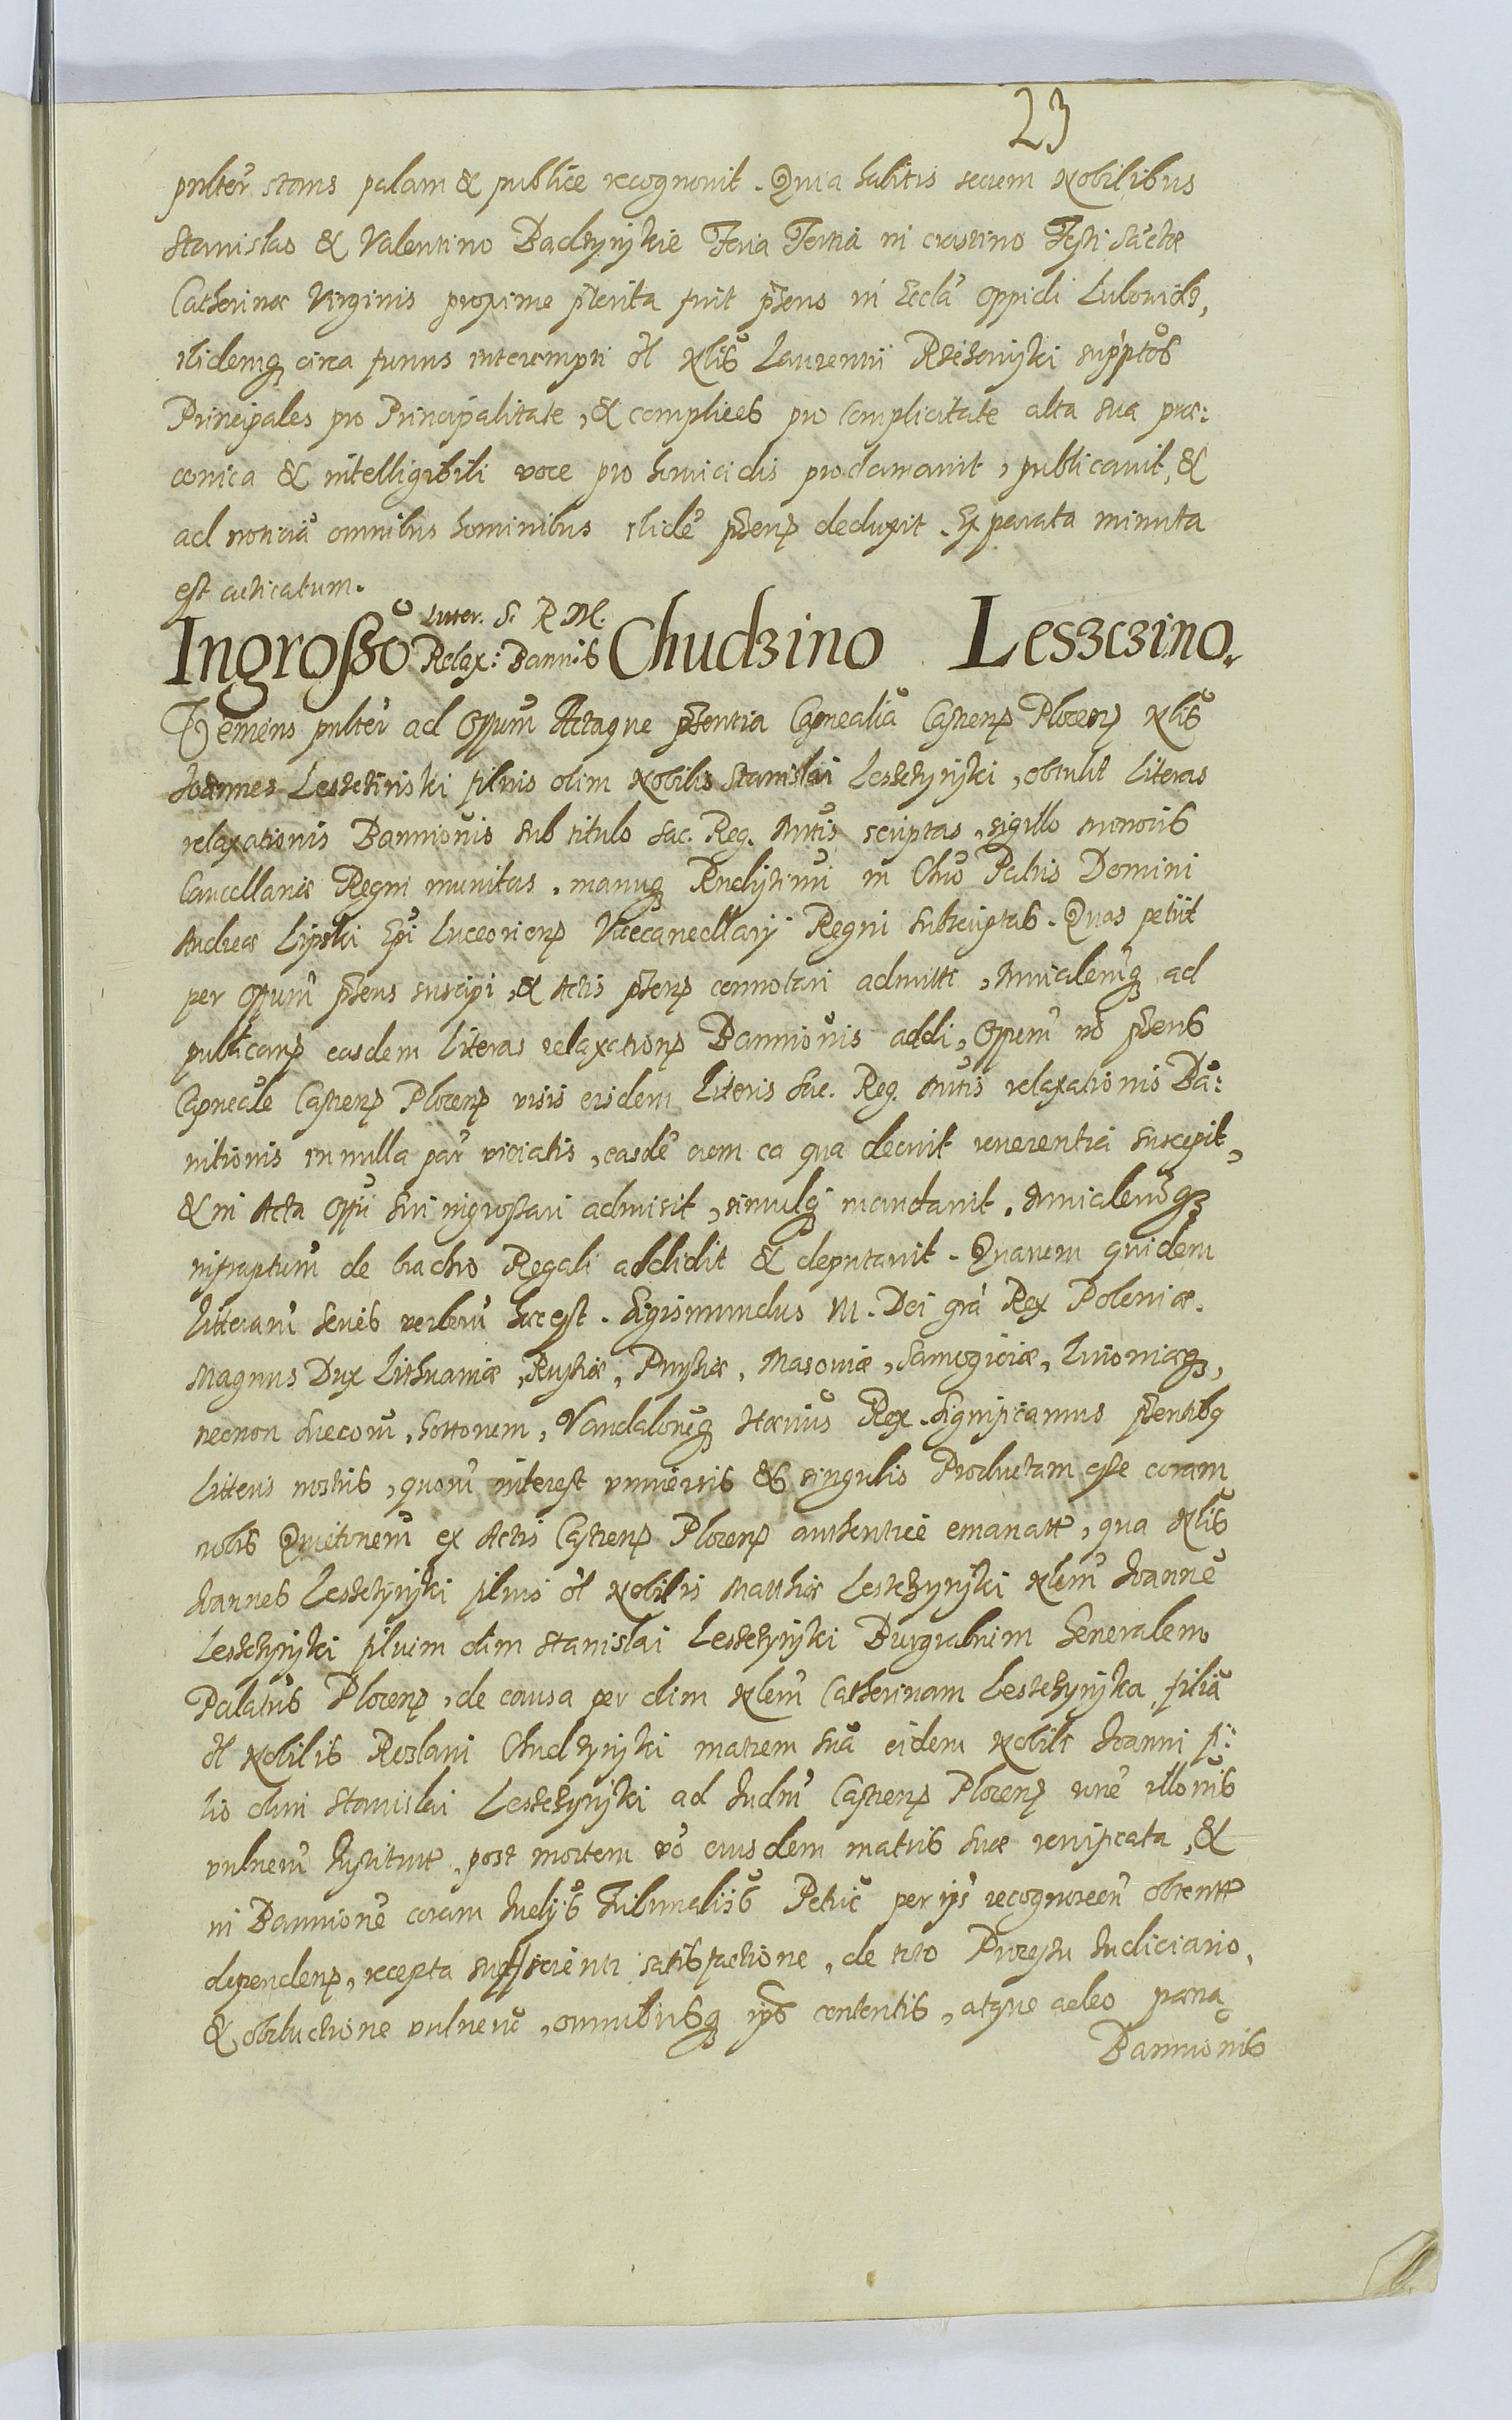 23
pnlter stans palam & publice recognovit. Quia habitis secum Nobilibus
Stanislao & Valentino Badzynskie Feria Tertia in crastino Festi Sactæ
Catherinæ Virginis proxime pterita fuit pns in Eccla oppidi
ibidemq circa funus interempti ol Nlis Laurentii supptos
Principales pro Principalitate, & complices pro complicitate alta sua præ:
conica & intelligibili voce pro homicidis proclamavit, publicavit, &
ad noticiã omnibus hominibus ibidẽ pnten deduxit. Ex parata minuta
est acticatum.
Ingrosso Liter. S. R. M.
Relax: Bannis Chudzino Leszczino.
Veniens pnlter ad Offum Actaque pntia Capnealia Castren Plocen Nlis
Joannes Leszczinski filius olim Nobilis Stanislai Leszczynski, obtulit Literas
relaxationis Bannionis sub titulo Sac. Reg. Mttis scriptas, sigillo minoris
Cancellariæ Regni munitas, manuq Rndissimi in Chro Patris Domini
Andreæ Lipski Epi Luceorien Vicecancellarij Regni subscriptas. Quas petiit
per Offum pns suscipi, & Actis pnten connotari admitti, Mnialemq ad
publican easdem Literas relaxation Bannionis addi, Offum vo pns
Capneale Castren Plocen visis eisdem Literis Sac. Reg. Mttis relaxationis Bã:
nitionis in nulla par viciatis, easdẽ cum ea qua decuit reverentia suscepit,
& in Acta Offii sui ingrossari admisit, simulq mandavit. Mnialemq
infraptum de brachio Regali addidit & deputavit. Quarum quidem
Litterarũ series verborũ hæc est. Sigismundus III. Dei gra Rex Poloniæ.
Magnus Dux Lithuaniæ, Russiæ, Prussiæ, Masoviæ, Samogitiæ, Livoniæq,
necnon Suecorũ, Gottorum, Vandalorũq Hæritus Rex. Significamus pntibq
Litteris nostris, quorũ interest universis & singulis Productam esse coram
nobis Quietonem ex Actis Castren Plocen authentice emanatã, qua Nlis
Joannes Leszczynski filius ol Nobilis Matthiæ Leszczynski Nlem Joannẽ
Leszczynski filium olim Stanislai Leszczynski Burgrabium Generalem
Palatus Plocen, de causa per olim Nlem Catherinam Leszczynska, filiã
ol Nobilis Chudzynski matrem suã eidem Nobili Joanni fi:
lio olim Stanislai Leszczynski ad Judm Castren Plocen rõne illonis
vulnerũ Institut, post mortem vo eiusdem matris suæ reinficata, &
in Bannionẽ coram Judijs Tribunalijs Petric per ips obtent
dependen, recepta sufficienti satisfactione, de toto Processu Judiciario,
& obductione vulnerũ, omnibusq ips contentis, atque adeo pæna
Bannionis